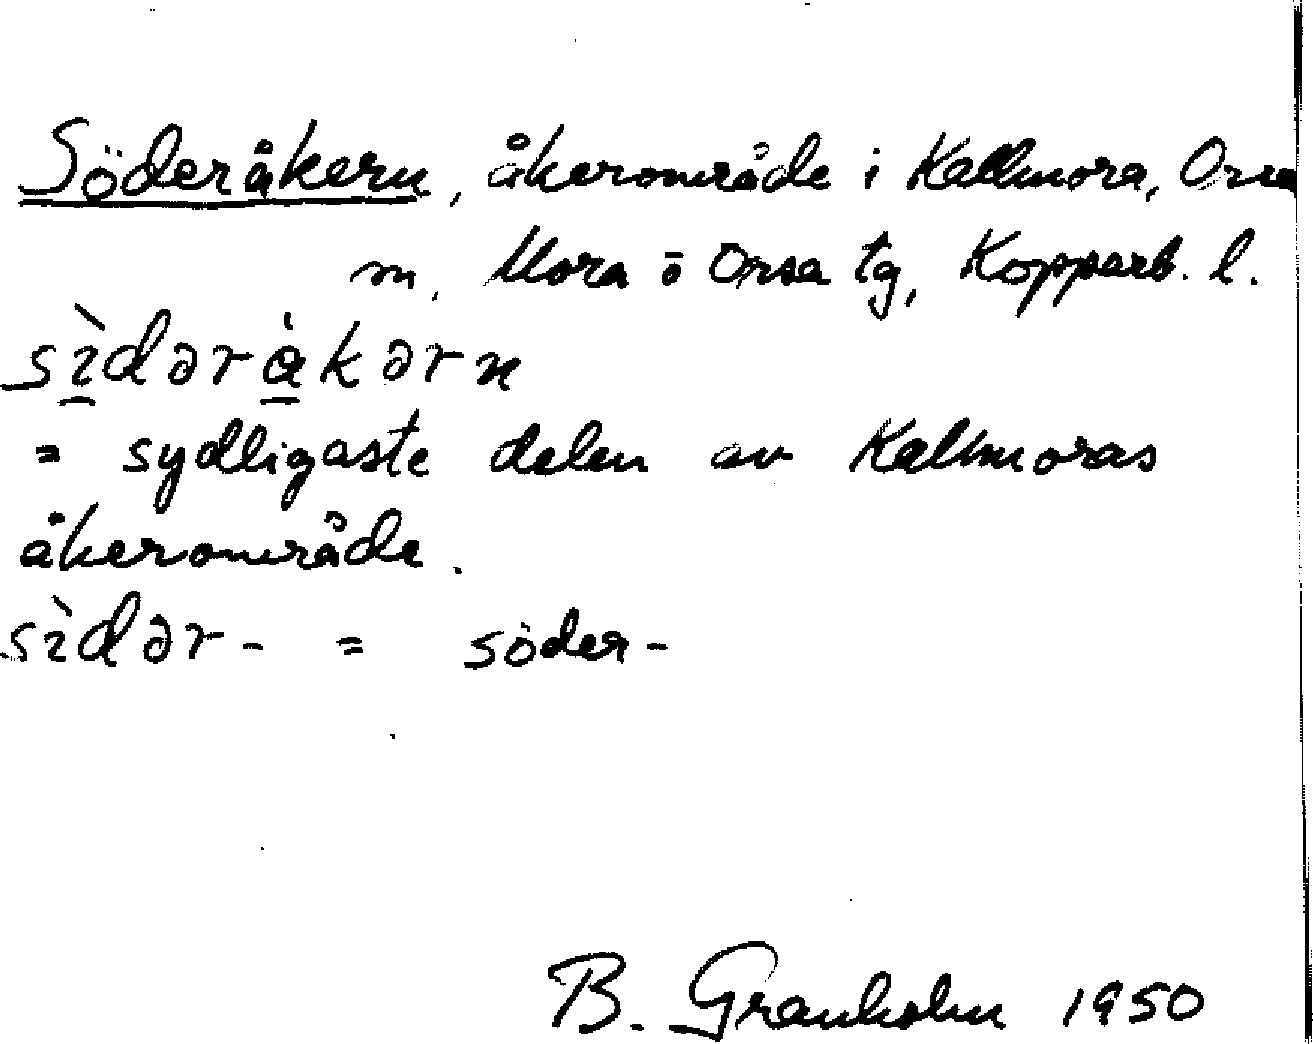 Söderåkern, åkerområde i Kallmora, Orsa
m, Mora o Orsa tg, Kopparb. l.
sìdəràkərn
= sydligaste delen av Kallmoras
åkerområde.
sìdər- = söder-
B. Granholm 1950